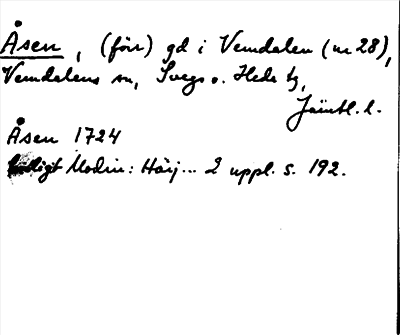 Åsen, (förr) gd i Vemdalen (nr 28),
Vemdalens sn, Svegs o. Hede tg,
Jämtl. l.
Åsen 1724
enligt Modin: Härj... 2 uppl. s. 192.